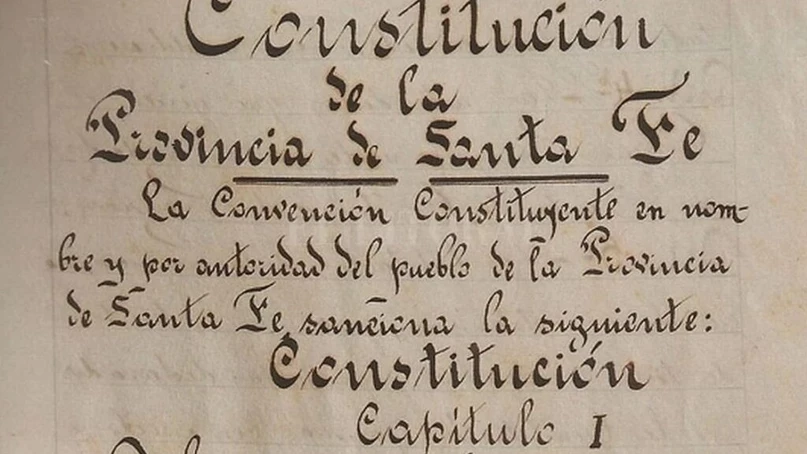 Constitución
de la
Provincia de Santa Fe
La Convención Constituyente en nom-
bre y por autoridad del pueblo de la Provincia
de Santa Fe, sanciona la siguiente:
Constitución
Capítulo I